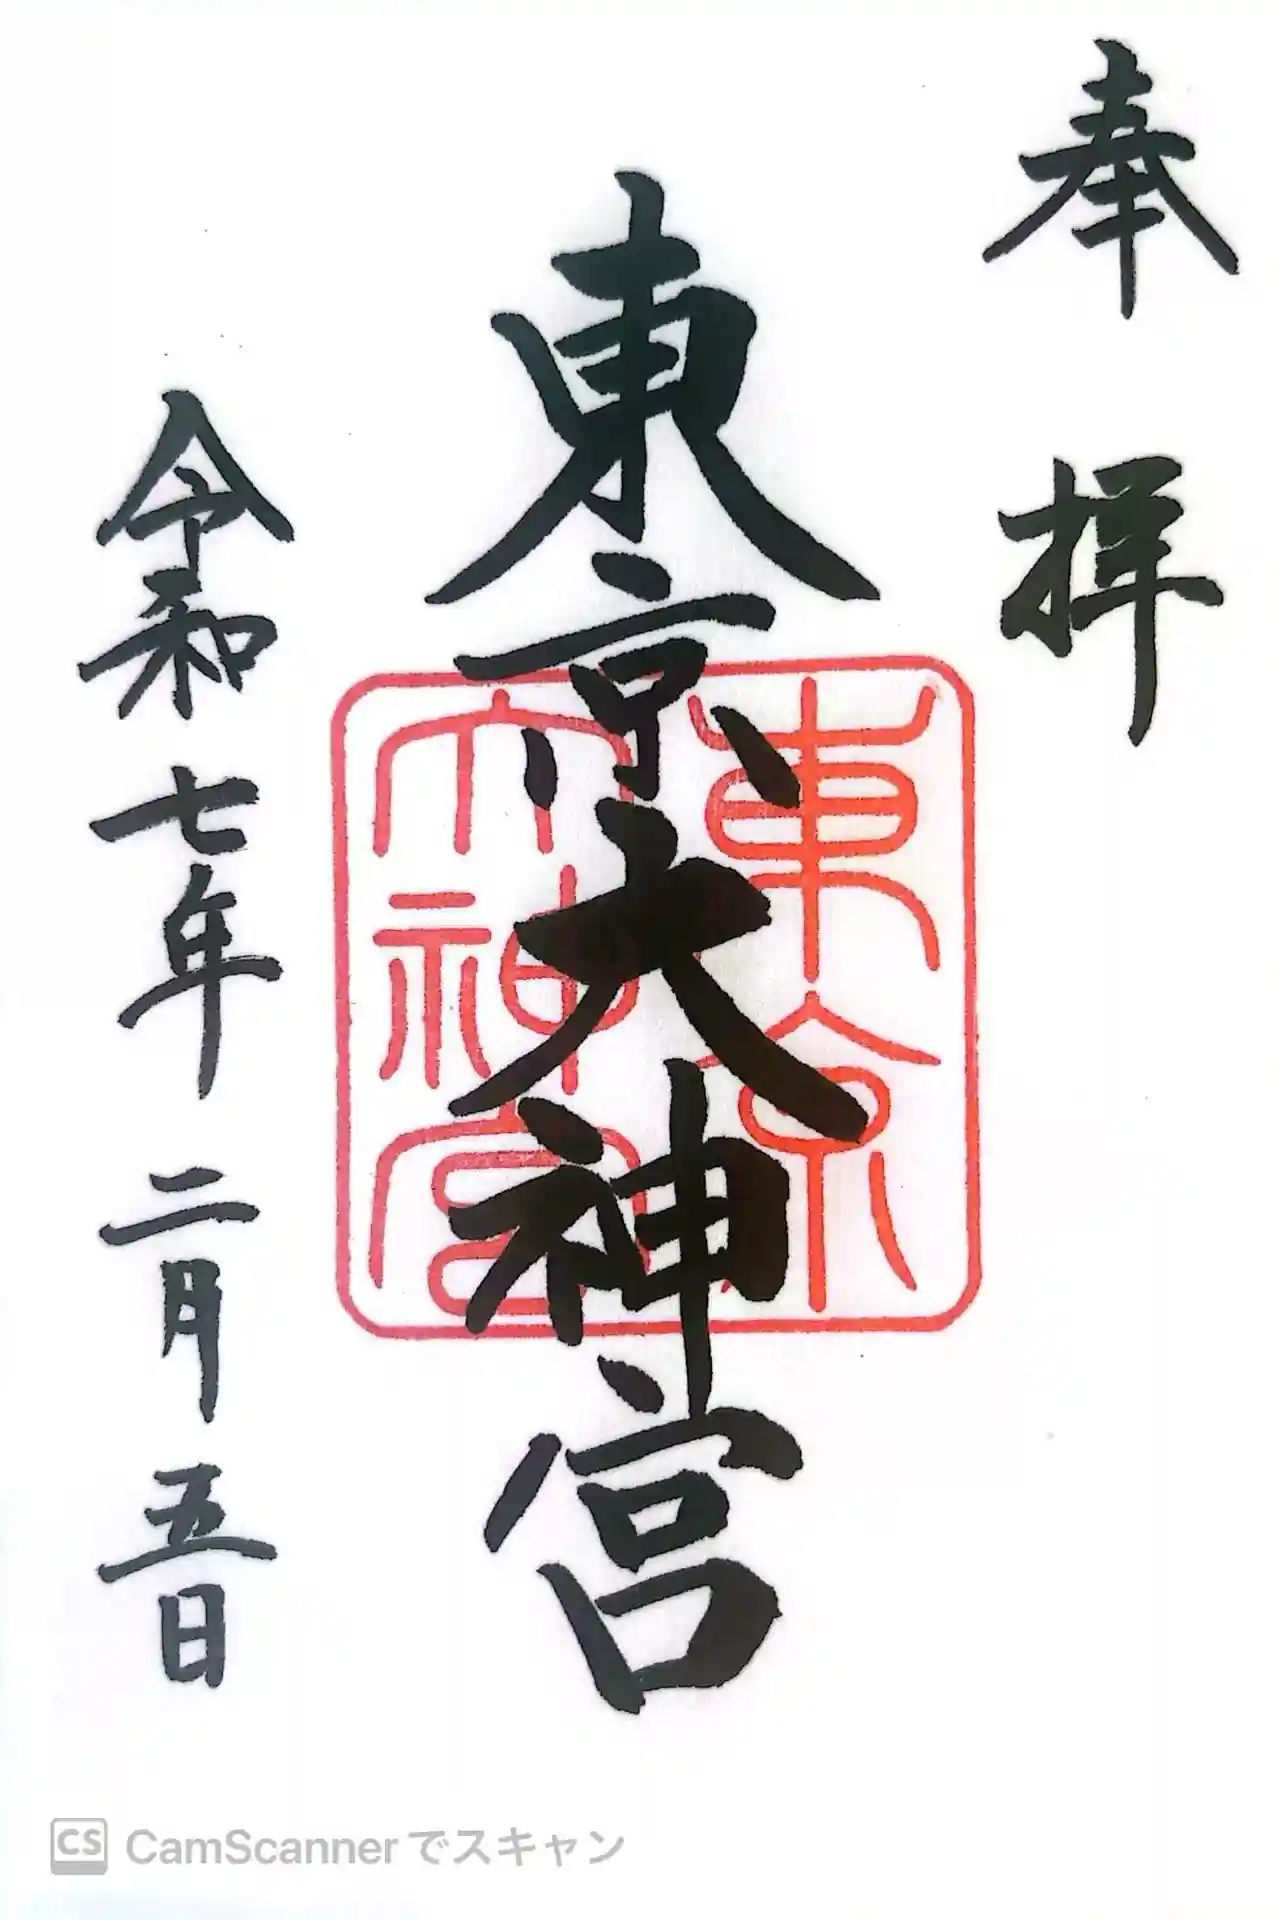 奉拝
東京大神宮
東京
大神宮
令和七年二月五日
CS CamScannerでスキャン